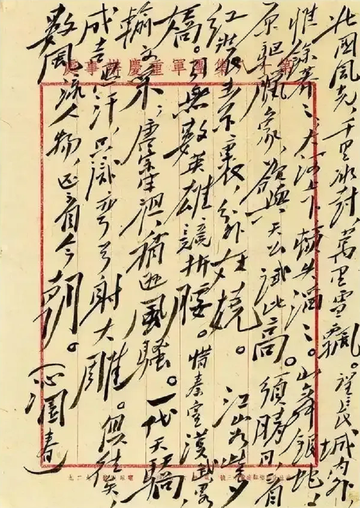 第十八集團軍重慶辦事處
北國風光，千里冰封，萬里雪飄。望長城內外，
惟餘莽莽；大河上下，頓失滔滔。山舞銀蛇，
原驅臘象，欲與天公試比高。須晴日，看
紅裝素裹，分外妖嬈。江山如此多
嬌，引無數英雄競折腰。惜秦皇漢武，略
輸文采；唐宗宋祖，稍遜風騷。一代天驕，
成吉思汗，只識彎弓射大雕。俱往矣，
數風流人物，還看今朝。沁園春